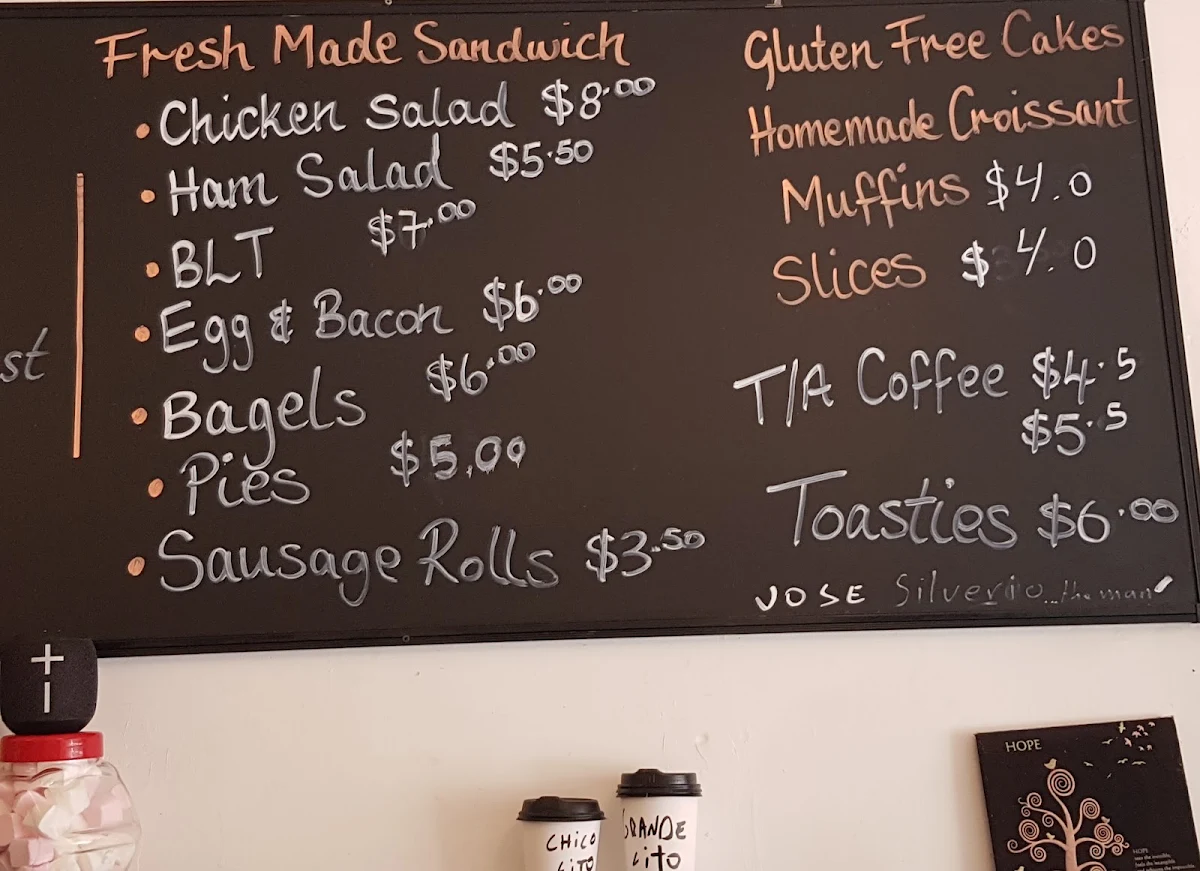 Fresh Made Sandwich
• Chicken Salad $8.00
• Ham Salad $5.50
• BLT $7.00
• Egg & Bacon $6.00
• Bagels $6.00
• Pies $5.00
• Sausage Rolls $3.50
st
Gluten Free Cakes
Homemade Croissant
Muffins $4.0
Slices $4.0
T/A Coffee $4.5
$5.5
Toasties $6.00
JOSE Silverio...the man
CHICO
GRANDE
cito
HOPE
HOPE